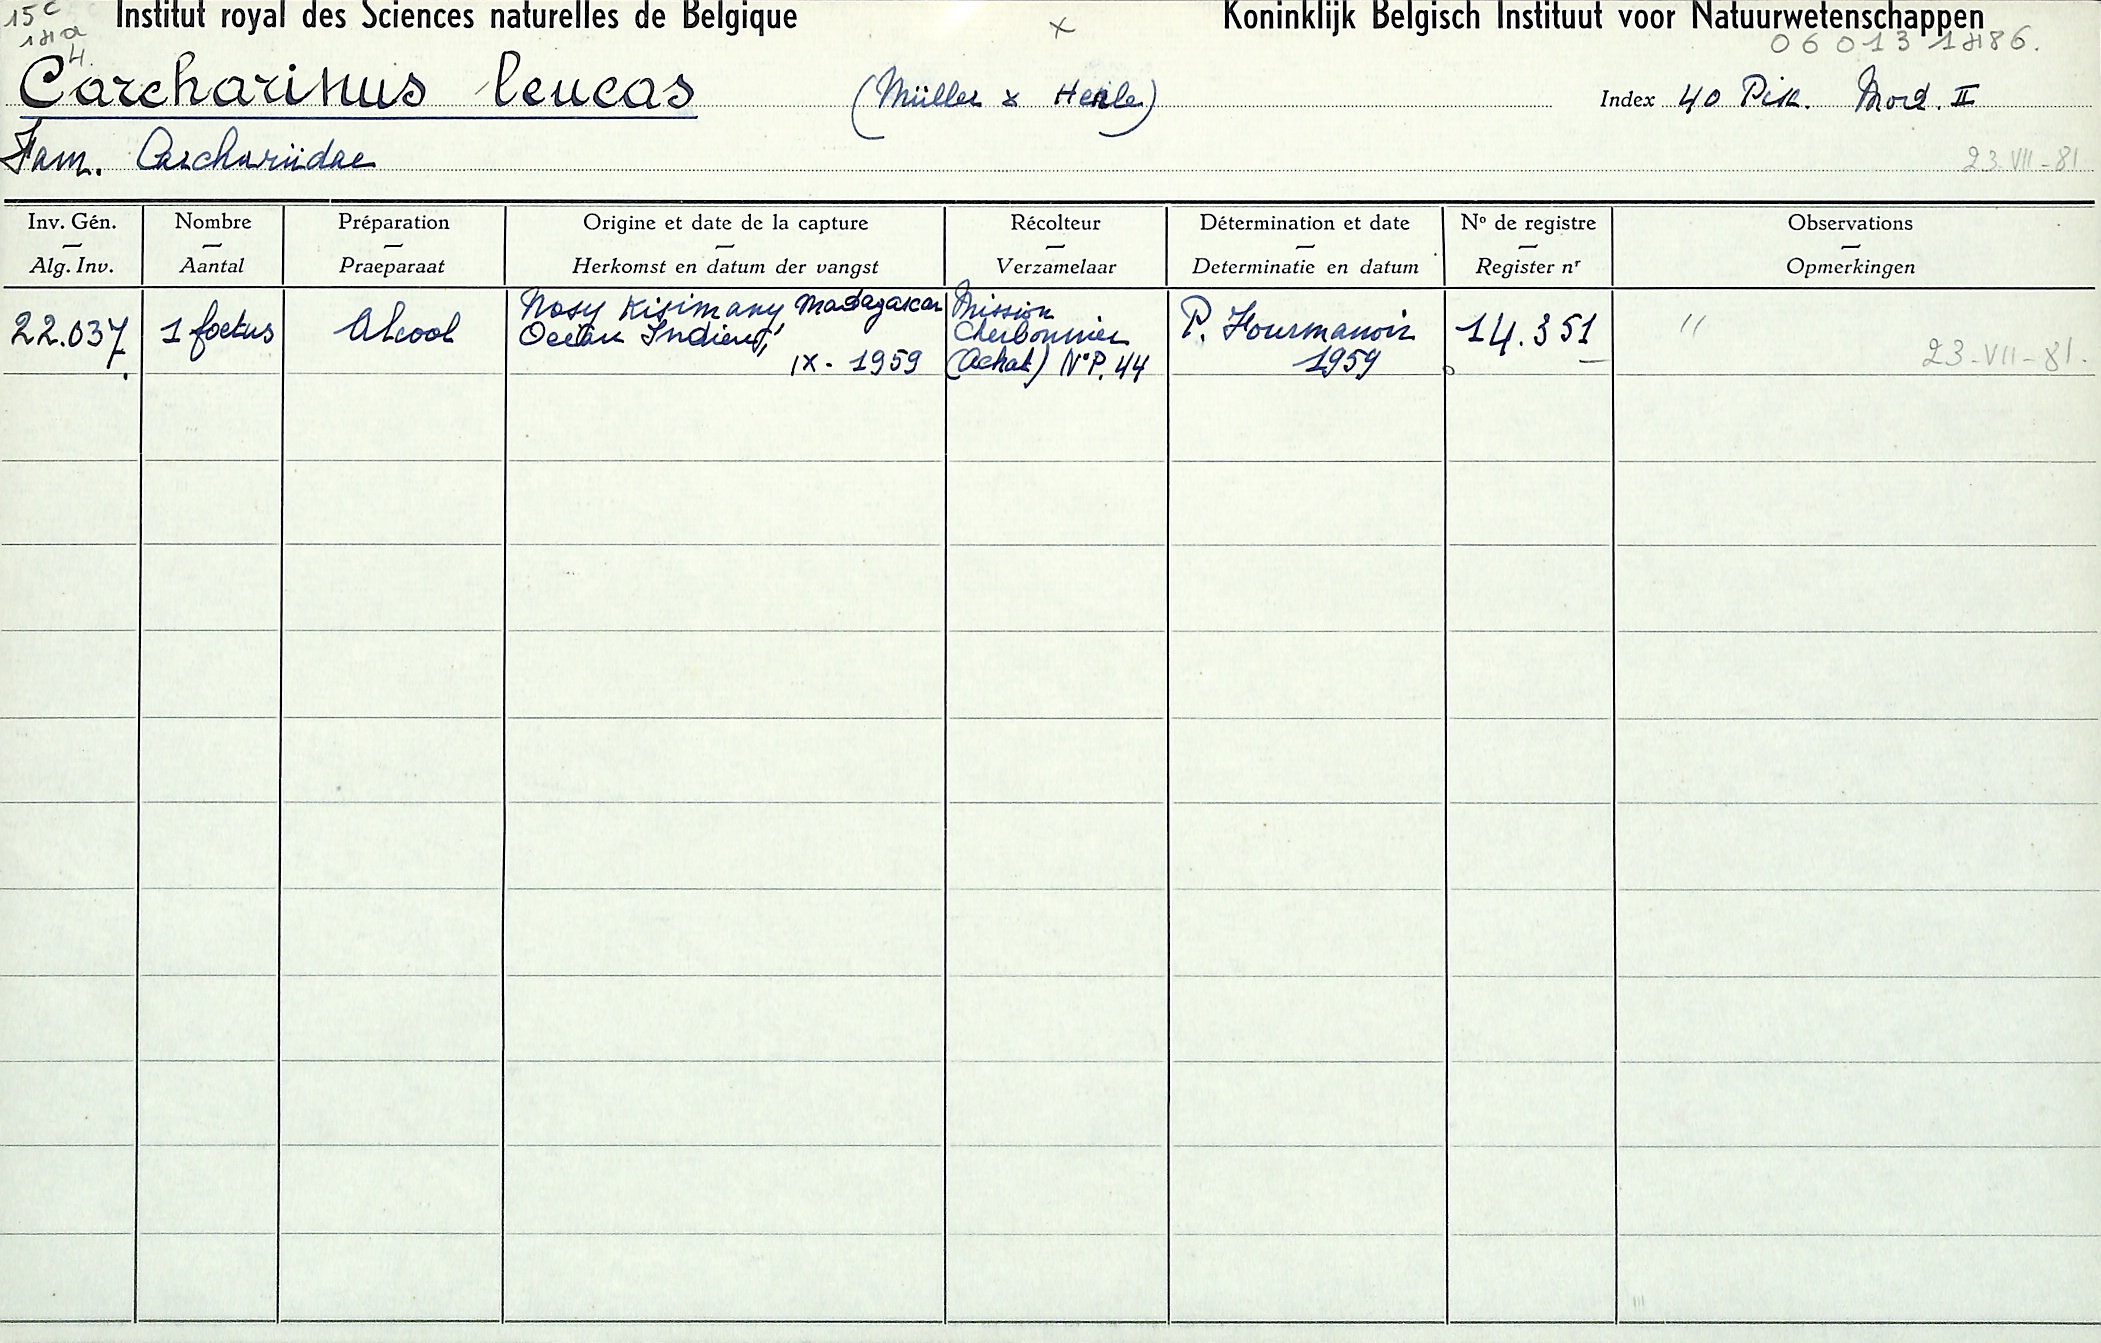 15c
14a
4
Institut royal des Sciences naturelles de Belgique
x
Koninklijk Belgisch Instituut voor Natuurwetenschappen
06013 1486.
Carcharinus leucas (Müller & Henle)
Index 40 Pisc. Mod. II
Fam. Carchariidae
23-VII-81
Inv. Gén. Nombre Préparation Origine et date de la capture Récolteur Détermination et date Nº de registre Observations
Alg. Inv. Aantal Praeparaat Herkomst en datum der vangst Verzamelaar Determinatie en datum Register nr Opmerkingen
22.037 1 foetus Alcool
Nosy Kisimany Madagascar
Océan Indien,
IX - 1959
Mission
Cherbonnier
(Achat) NºP. 44
P. Fourmanoir
1959
14.351
"
23-VII-81.